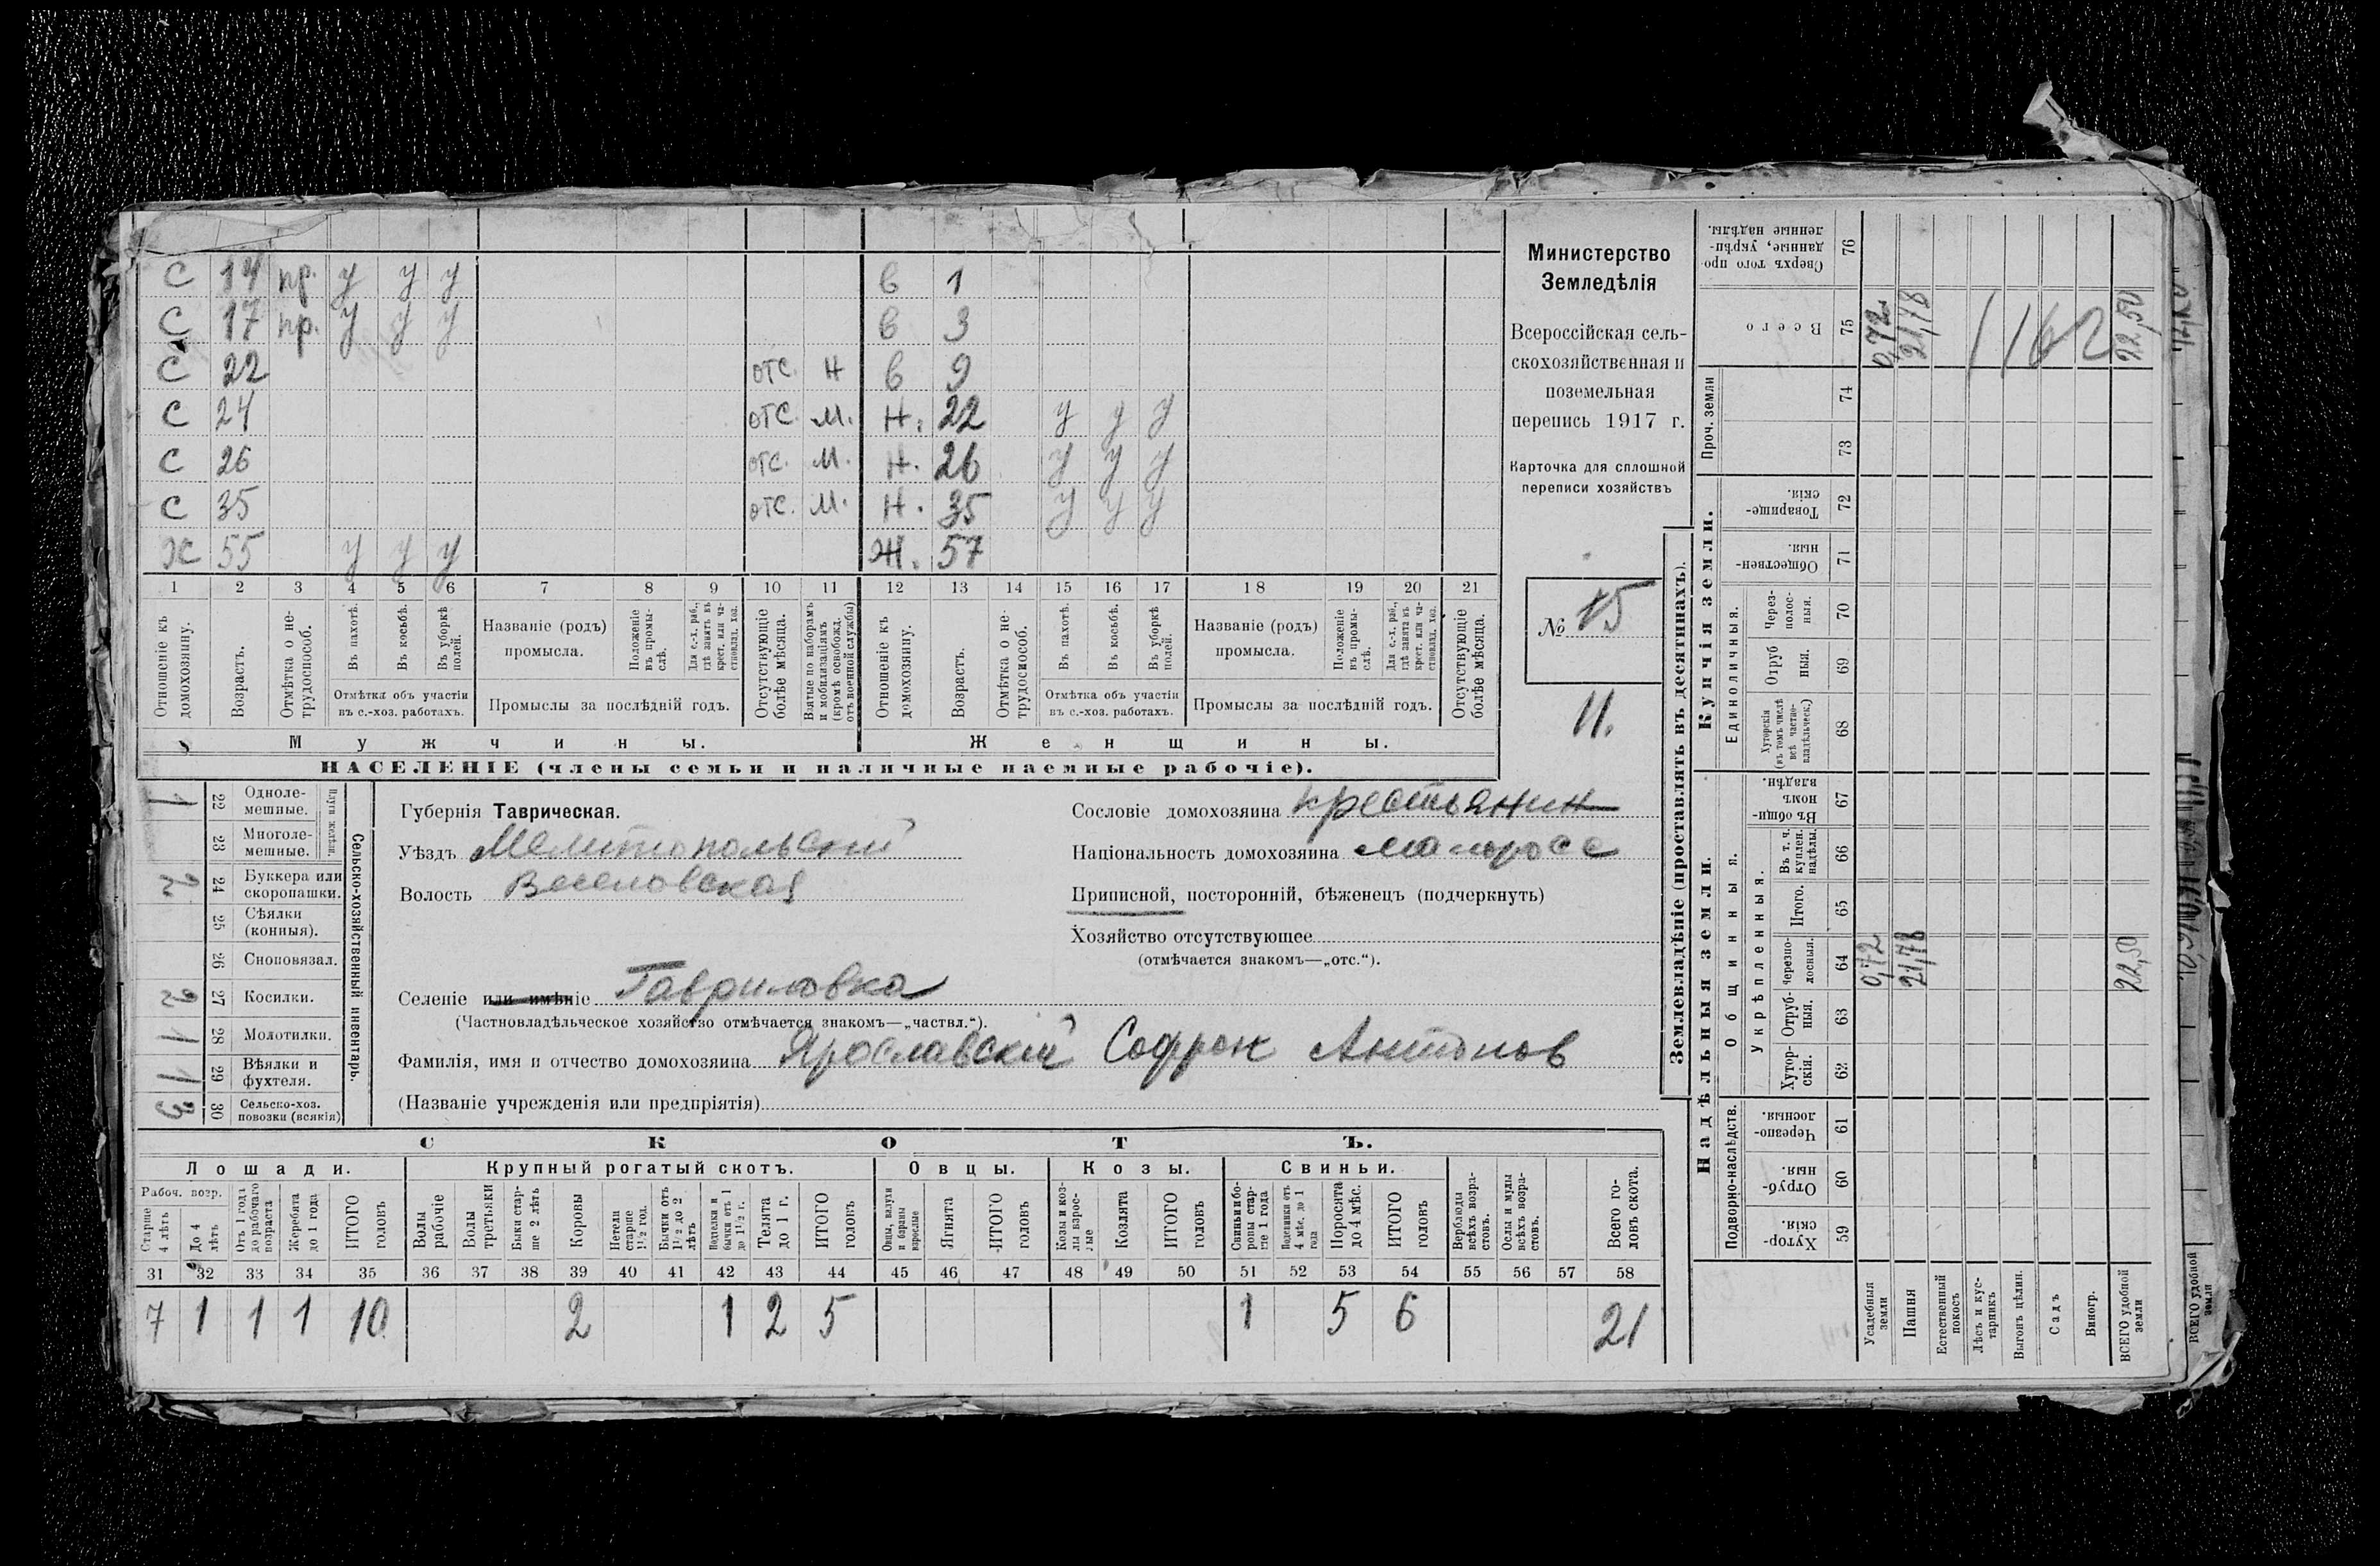 С 14 пр. у у у в 1
С 17 пр. у у у в 3
С 22 отс. н в 9
С 24 отс. м. н. 22 у у у
С 26 отс. м. н. 26 у у у
С 35 отс. м. н. 35 у у у
Х 55 у у у Ж. 57
1 2 3 4 5 6 7 8 9 10 11 12 13 14 15 16 17 18 19 20 21
Отношеніе къ домохозяину.
Возрастъ.
Отмѣтка о нетрудоспособ.
Въ пахотѣ.
Въ косьбѣ.
Въ уборкѣ полей.
Отмѣтка объ участіи
въ с.-хоз. работахъ.
Названіе (родъ)
промысла.
Положеніе въ промыслѣ.
Для с.-х. раб., гдѣ занятъ въ крест. или частновлад. хоз.
Промыслы за послѣдній годъ.
Отсутствующіе болѣе мѣсяца.
Взятые по наборамъ и мобилизаціямъ (кромѣ освобожд. отъ военной службы)
Отношеніе къ домохозяину.
Возрастъ.
Отмѣтка о нетрудоспособ.
Въ пахотѣ.
Въ косьбѣ.
Въ уборкѣ полей.
Отмѣтка объ участіи
въ с.-хоз. работахъ.
Названіе (родъ)
промысла.
Положеніе въ промыслѣ.
Для с.-х. раб., гдѣ занята въ крест. или частновлад. хоз.
Промыслы за послѣдній годъ.
Отсутствующіе болѣе мѣсяца.
Мужчины. Женщины.
НАСЕЛЕНІЕ (члены семьи и наличные наемные рабочіе).
Министерство
Земледѣлія
Всероссійская сель-
скохозяйственная и
поземельная
перепись 1917 г.
Карточка для сплошной
переписи хозяйствъ
№ 15
11.
1 22 Одноле-
мешные.
23 Многоле-
мешные.
Плуги желѣзн.
2 24 Буккера или
скоропашки.
25 Сѣялки
(конныя).
26 Сноповязал.
2 27 Косилки.
1 28 Молотилки.
1 29 Вѣялки и
фухтеля.
3 30 Сельско-хоз.
повозки (всякія)
Сельско-хозяйственный инвентарь.
Губернія Таврическая.
Уѣздъ Мелитопольскій
Волость Веселовская
Селеніе или имѣніе Гавриловка
(Частновладѣльческое хозяйство отмѣчается знакомъ—„частвл.“).
Фамилія, имя и отчество домохозяина Ярославскій Софрон Антонов
(Названіе учрежденія или предпріятія)
Сословіе домохозяина крестьянин
Національность домохозяина малоросс
Приписной, посторонній, бѣженецъ (подчеркнуть)
Хозяйство отсутствующее
(отмѣчается знакомъ—„отс.“).
СКОТЪ.
Лошади. Крупный рогатый скотъ. Овцы. Козы. Свиньи.
Рабоч. возр.
Старше 4 лѣтъ
До 4 лѣтъ
Отъ 1 года до рабочаго возраста
Жеребята до 1 года
ИТОГО головъ
Волы рабочіе
Волы третьяки
Быки старше 2 лѣтъ
Коровы
Нетели старше 1½ год.
Бычки отъ 1½ до 2 лѣтъ
Подтелки и бычки отъ 1 до 1½ г.
Телята до 1 г.
ИТОГО головъ
Овцы, валухи и бараны взрослые
Ягнята
ИТОГО головъ
Козы и козлы взрослые
Козлята
ИТОГО головъ
Свиньи и боровы старше 1 года
Подсвинки отъ 4 мѣс. до 1 года
Поросята до 4 мѣс.
ИТОГО головъ
Верблюды всѣхъ возрастовъ.
Ослы и мулы всѣхъ возрастовъ.
Всего головъ скота.
31 32 33 34 35 36 37 38 39 40 41 42 43 44 45 46 47 48 49 50 51 52 53 54 55 56 57 58
7 1 1 1 10 2 1 2 5 1 5 6 21
Землевладѣніе (проставлять въ десятинахъ).
Надѣльныя земли. Купчія земли.
Подворно-наслѣдств.
Общинныя.
Укрѣпленныя.
Единоличныя.
Проч. земли
Хуторскія. 59
Отрубныя. 60
Черезполосныя. 61
Хуторскія. 62
Отрубныя. 63
Черезполосныя. 64 0,72 21,78 22,50
Итого. 65
Въ т. ч. куплен. надѣлы. 66
Въ общинномъ владѣн. 67
Хуторскія (въ томъ числѣ всѣ частновладѣльческ.) 68
Отрубныя. 69
Черезполосныя. 70
Общественныя. 71
Товарищескія. 72
73
74
Всего 75 0,72 21,78 1162 22,50
Сверхъ того проданные, укрѣпленные надѣлы. 76
Усадебныя земли
Пашня
Естественный покосъ
Лѣсъ и кустарникъ
Выгонъ цѣлин.
Садъ
Виногр.
ВСЕГО удобной земли
ВСЕГО удобной земли